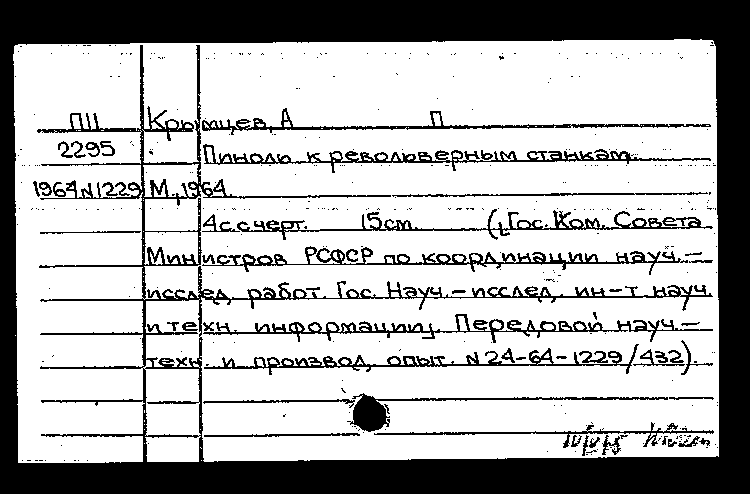 ПII Крымцев, А П
2295 Пиноль к револьверным станкам.
1964 N 1229 М., 1964.
4 с. с черт. 15 см. ([Гос. Ком. Совета
Министров РСФСР по координации науч.-
исслед. работ. Гос. Науч.-исслед. ин-т науч.
и техн. информации]. Передовой науч.-
техн. и производ. опыт. N 24-64-1229/432).